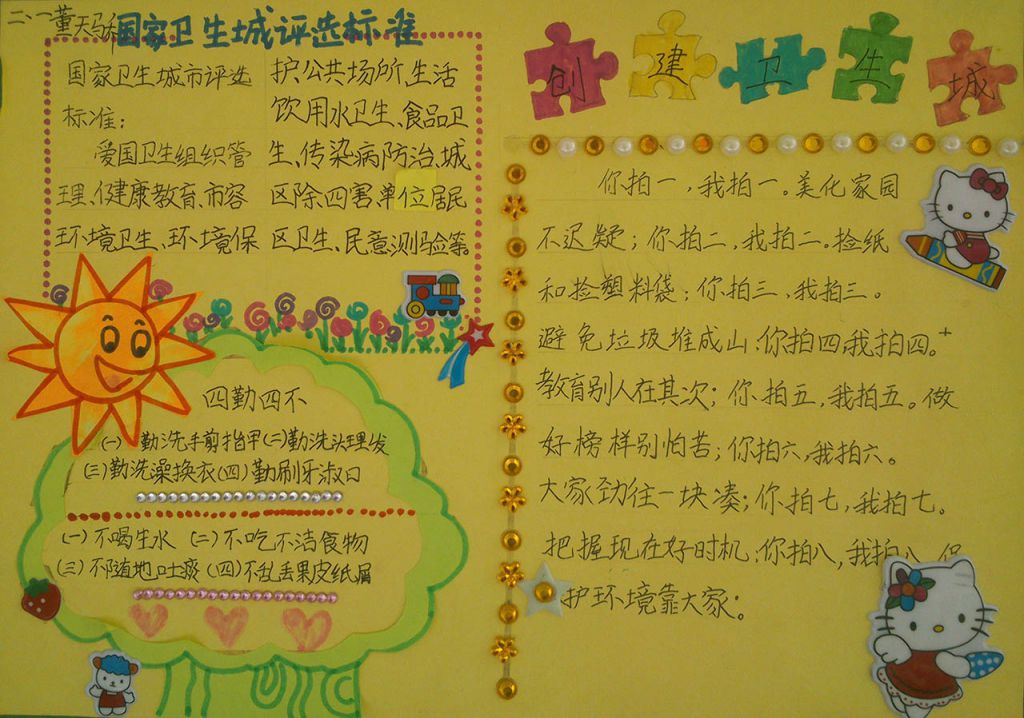 二、一董天马
国家卫生城评选标准
国家卫生城市评选
标准：
爱国卫生组织管
理、健康教育、市容
环境卫生、环境保
护公共场所、生活
饮用水卫生、食品卫
生、传染病防治、城
区除四害、单位居民
区卫生、民意测验等。
四勤四不
(一) 勤洗手剪指甲(二)勤洗头理发
(三)勤洗澡换衣(四)勤刷牙漱口
(一)不喝生水 (二)不吃不洁食物
(三)不随地吐痰 (四)不乱丢果皮纸屑
创建卫生城
你拍一，我拍一。美化家园
不迟疑；你拍二，我拍二。捡纸
和捡塑料袋；你拍三，我拍三。
避免垃圾堆成山；你拍四，我拍四。
教育别人在其次；你拍五，我拍五。做
好榜样别怕苦；你拍六，我拍六。
大家劲往一块凑；你拍七，我拍七。
把握现在好时机；你拍八，我拍八。保
护环境靠大家。